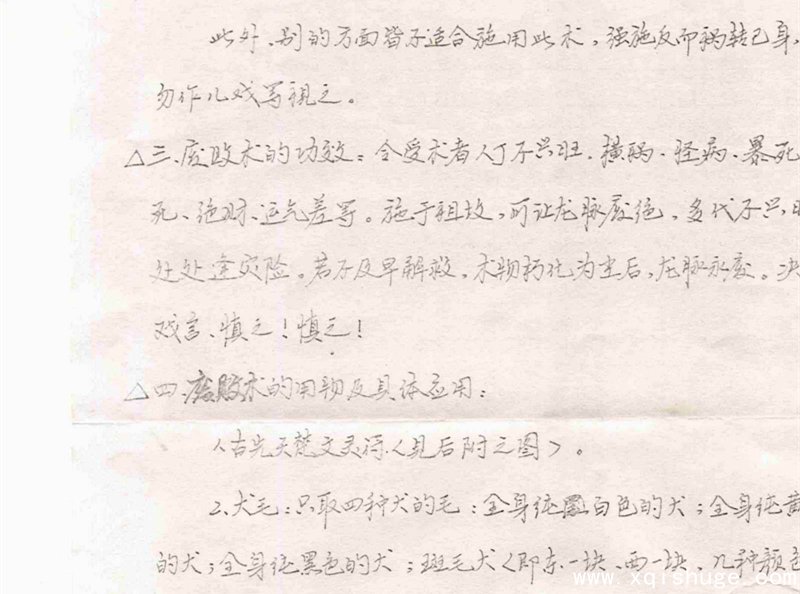 此外、别的方面皆不适合施用此术，强施反而祸转己身，
勿作儿戏等视之。
△三.废败术的功效：令受术者人丁不兴旺、横祸、怪病、暴死
死、绝财、运气差等。施于祖坟，可让龙脉废绝，多代不兴，
处处逢灾险。若不及早解救，术物朽化为尘后，龙脉永废。决
戏言、慎之！慎之！
△四.废败术的用物及具体应用：
1.古先天梵文灵符〈见后附之图〉。
2.犬毛：只取四种犬的毛：全身纯白色的犬；全身纯黄
的犬；全身纯黑色的犬；斑毛犬〈即东一块、西一块、几种颜色
www.xqishuge.com